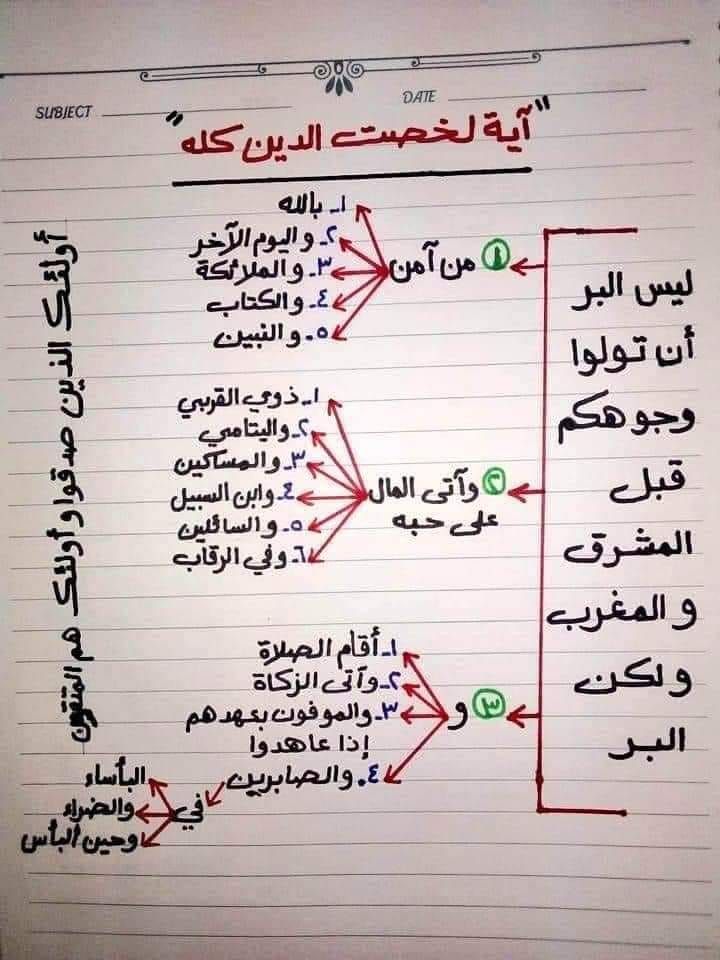 SUBJECT
DATE
"آية لخصت الدين كله"
ليس البر
أن تولوا
وجوهكم
قبل
المشرق
والمغرب
ولكن
البر
١ من آمن
١ـ بالله
٢ـ واليوم الآخر
٣ـ والملائكة
٤ـ والكتاب
٥ـ والنبين
٢ وآتى المال
على حبه
١ـ ذوي القربي
٢ـ واليتامي
٣ـ والمساكين
٤ـ وابن السبيل
٥ـ والسائلين
٦ـ وفي الرقاب
٣ و
١ـ أقام الصلاة
٢ـ وآتى الزكاة
٣ـ والموفون بعهدهم
إذا عاهدوا
٤ـ والصابرين
في
البأساء
والضراء
وحين ألبأس
أولئك الذين صدقوا وأولئك هم المتقون